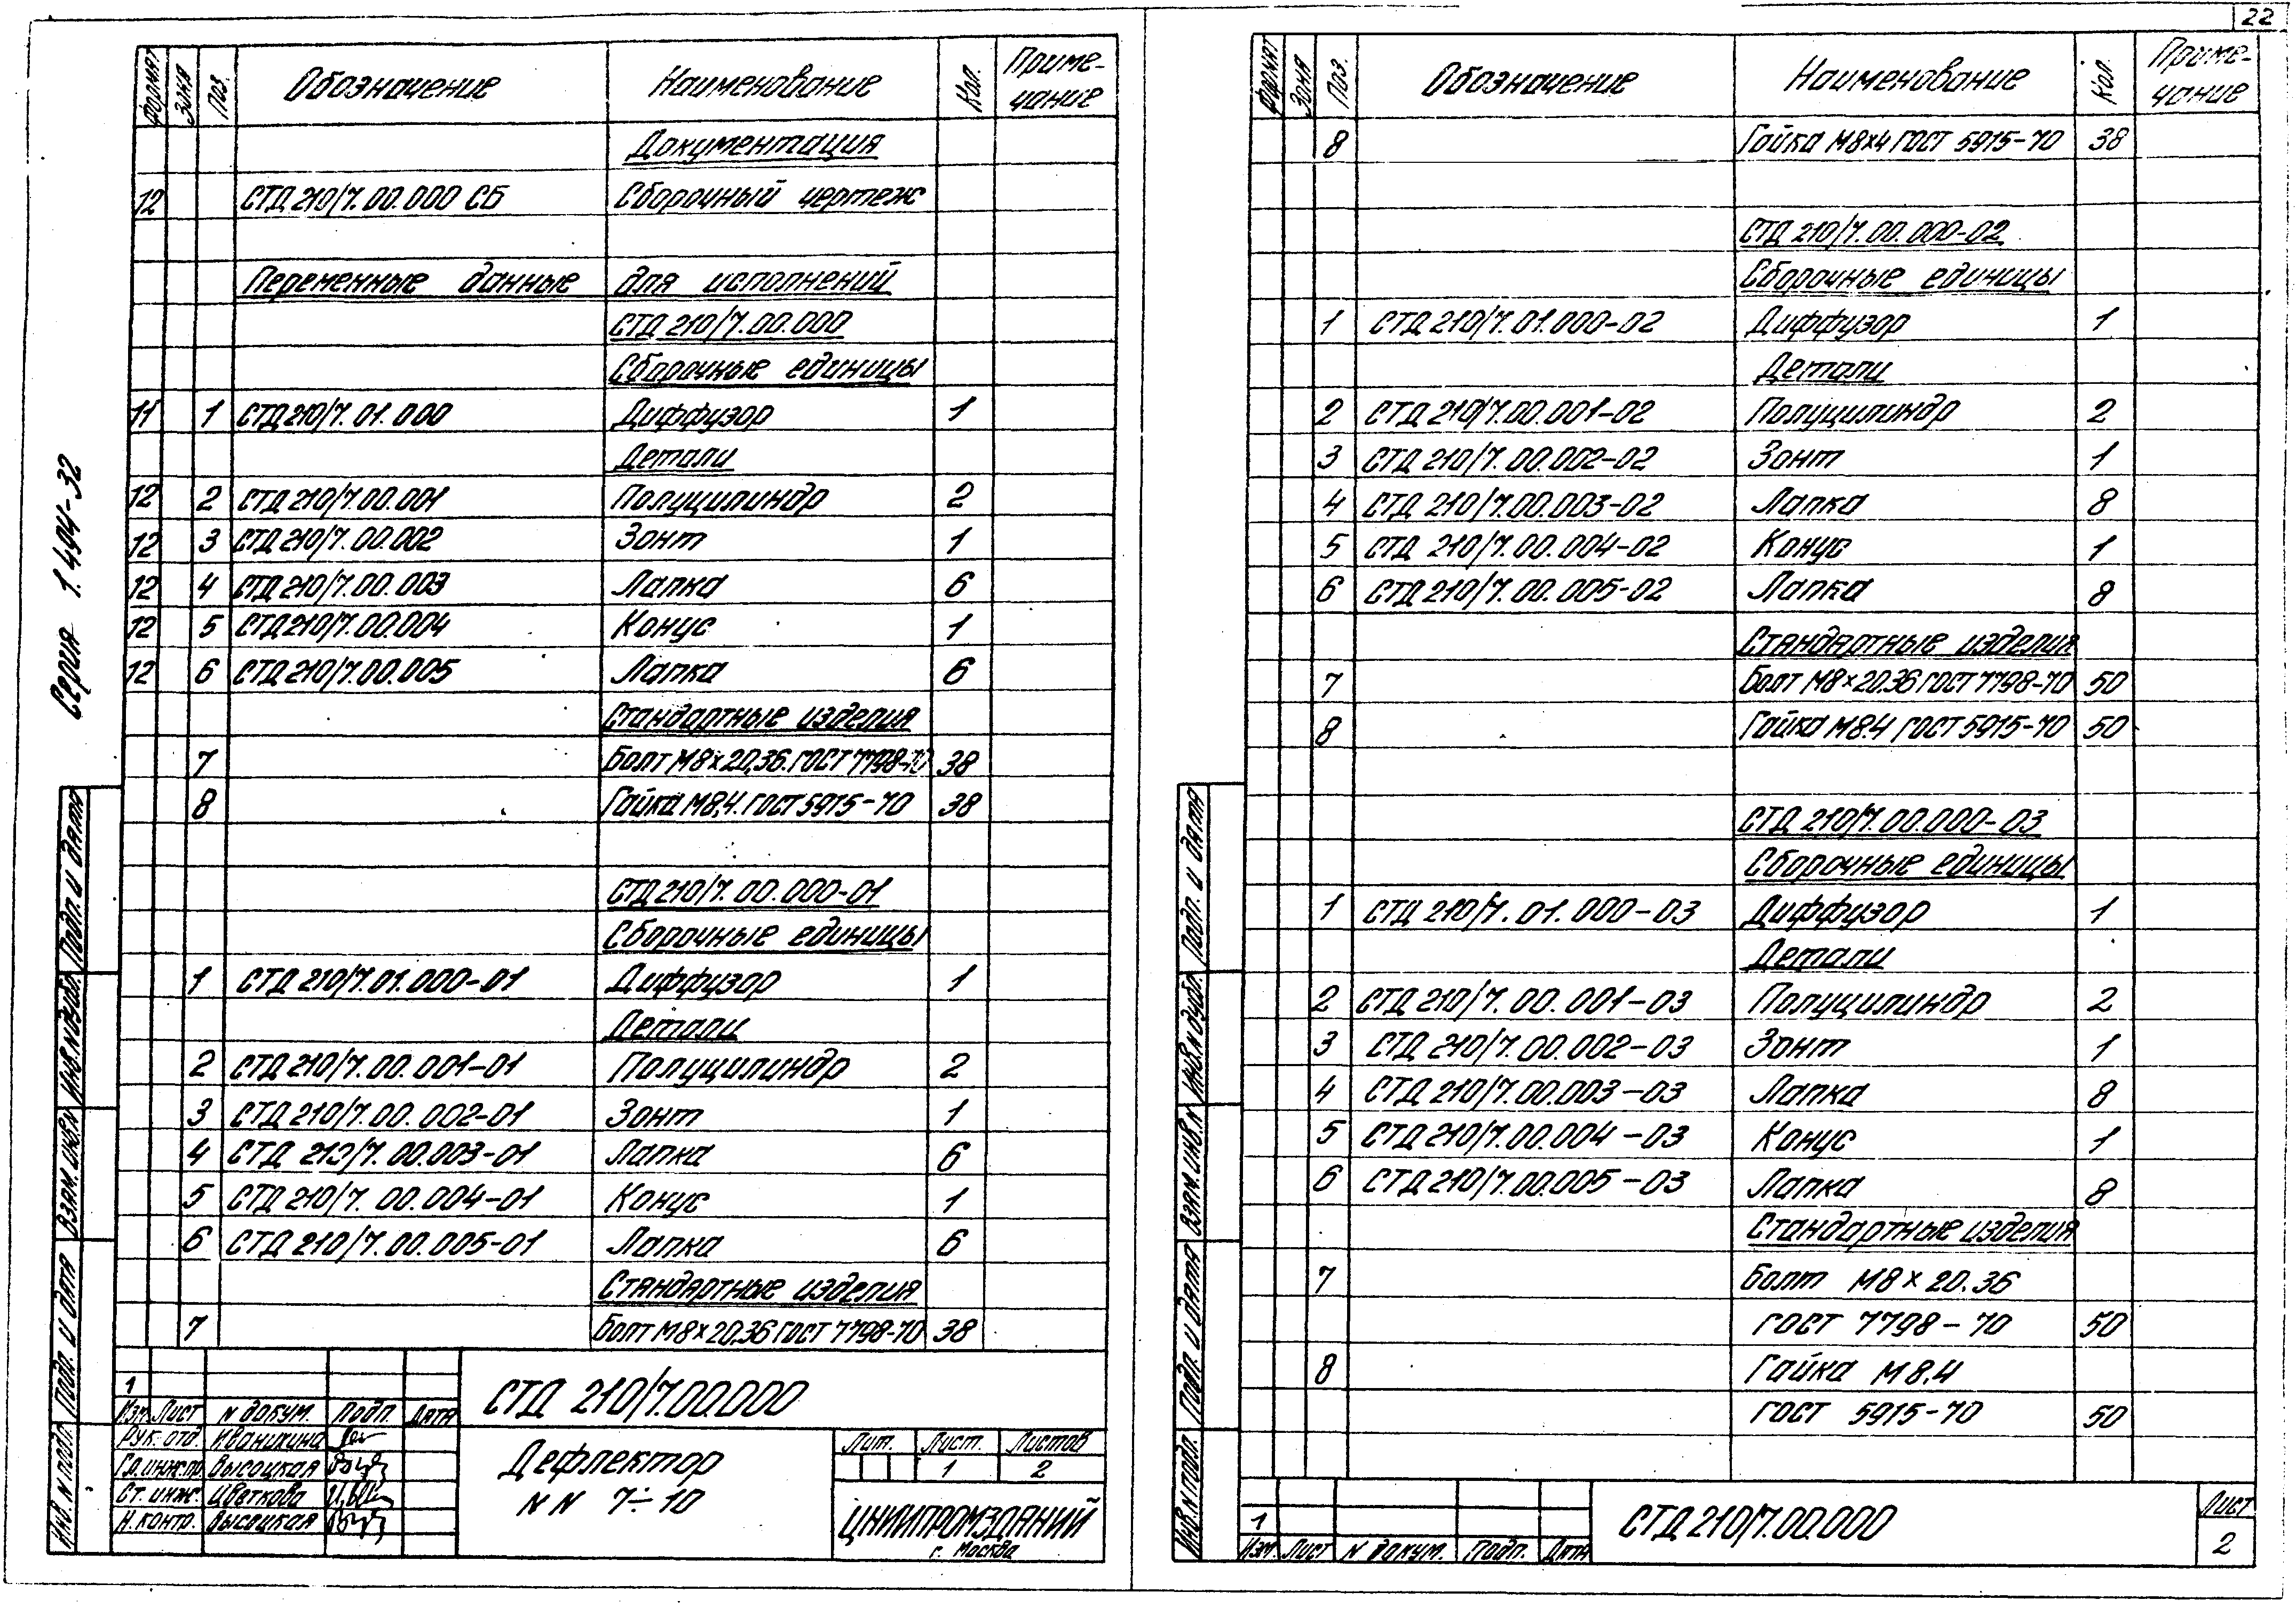 22
Серия 1.494-32
Формат Зона Поз. Обозначение Наименование Кол. Приме-
чание
Документация
12 СТД 210/7.00.000 СБ Сборочный чертеж
Переменные данные для исполнений
СТД 210/7.00.000
Сборочные единицы
11 1 СТД 210/7.01.000 Диффузор 1
Детали
12 2 СТД 210/7.00.001 Полуцилиндр 2
12 3 СТД 210/7.00.002 Зонт 1
12 4 СТД 210/7.00.003 Лапка 6
12 5 СТД 210/7.00.004 Конус 1
12 6 СТД 210/7.00.005 Лапка 6
Стандартные изделия
7 Болт М8×20.36. ГОСТ 7798-70 38
8 Гайка М8.4. ГОСТ 5915-70 38
СТД 210/7.00.000-01
Сборочные единицы
1 СТД 210/7.01.000-01 Диффузор 1
Детали
2 СТД 210/7.00.001-01 Полуцилиндр 2
3 СТД 210/7.00.002-01 Зонт 1
4 СТД 210/7.00.003-01 Лапка 6
5 СТД 210/7.00.004-01 Конус 1
6 СТД 210/7.00.005-01 Лапка 6
Стандартные изделия
7 Болт М8×20.36 ГОСТ 7798-70 38
Подп. и дата
Инв.N дубл.
Взам. инв.N
Подп. и дата
Инв. N подл.
1
Изм Лист N докум. Подп. Дата
Рук. отд. Иванихина
Гл. инж.пр. Высоцкая
Ст. инж. Цветкова
Н. контр. Высоцкая
СТД 210/7.00.000
Дефлектор
NN 7÷10
Лит. Лист. Листов
1 2
ЦНИИПРОМЗДАНИЙ
г. Москва
Формат Зона Поз. Обозначение Наименование Кол. Приме-
чание
8 Гайка М8×4 ГОСТ 5915-70 38
СТД 210/7.00.000-02
Сборочные единицы
1 СТД 210/7.01.000-02 Диффузор 1
Детали
2 СТД 210/7.00.001-02 Полуцилиндр 2
3 СТД 210/7.00.002-02 Зонт 1
4 СТД 210/7.00.003-02 Лапка 8
5 СТД 210/7.00.004-02 Конус 1
6 СТД 210/7.00.005-02 Лапка 8
Стандартные изделия
7 Болт М8×20.36 ГОСТ 7798-70 50
8 Гайка М8.4 ГОСТ 5915-70 50
СТД 210/7.00.000-03
Сборочные единицы
1 СТД 210/7.01.000-03 Диффузор 1
Детали
2 СТД 210/7.00.001-03 Полуцилиндр 2
3 СТД 210/7.00.002-03 Зонт 1
4 СТД 210/7.00.003-03 Лапка 8
5 СТД 210/7.00.004-03 Конус 1
6 СТД 210/7.00.005-03 Лапка 8
Стандартные изделия
7 Болт М8×20.36
ГОСТ 7798-70 50
8 Гайка М8.4
ГОСТ 5915-70 50
Подп. и дата
Инв.N дубл.
Взам. инв.N
Подп. и дата
Инв.N подл.
1
Изм Лист N докум. Подп. Дата
СТД 210/7.00.000
Лист
2